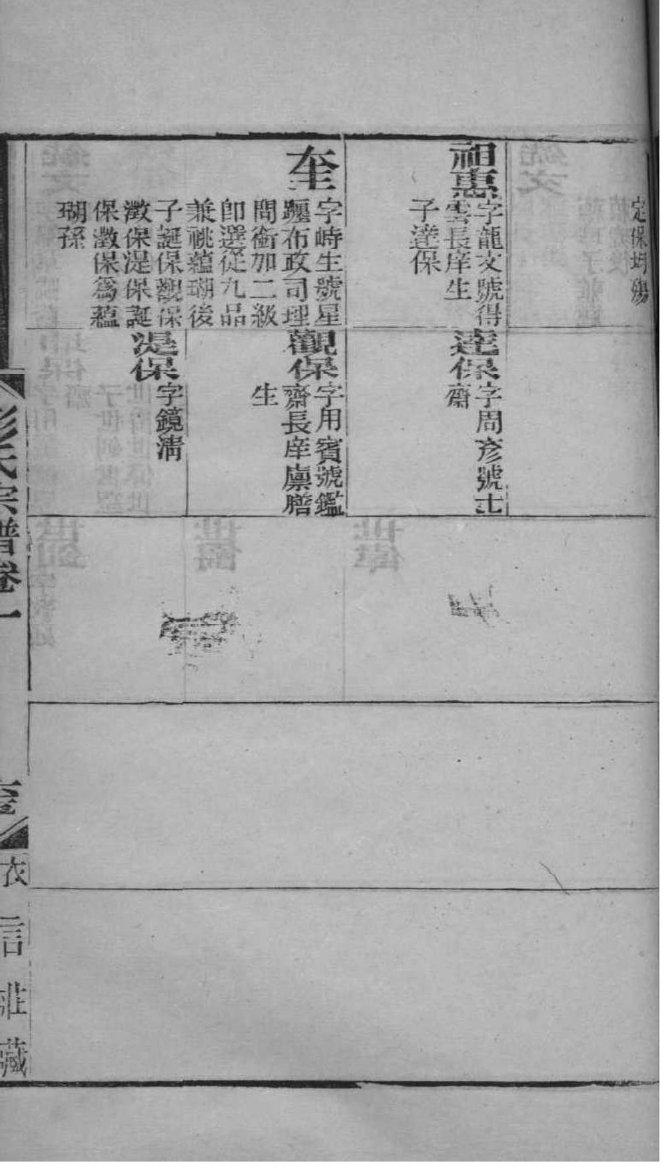 定保坍殤
祖惠
字龍文號得
雲長庠生
子達保
奎
字峙生號星
躔布政司理
問銜加二級
即選從九品
兼祧蘊瑚後
子誕保觀保
澂保湜保誕
保澂保為蘊
瑚孫
達保
字周彥號士
齋
觀保
字用賓號鑑
齋長庠廩膳
生
湜保
字鏡淸
彭氏宗譜卷一
衣言莊藏